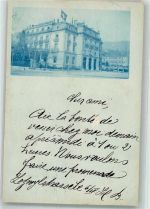 Cher ami,
Aie la bonté de
venir chez moi demain
après midi à 1 ou 2
heures. Nous voulons
faire une promenade